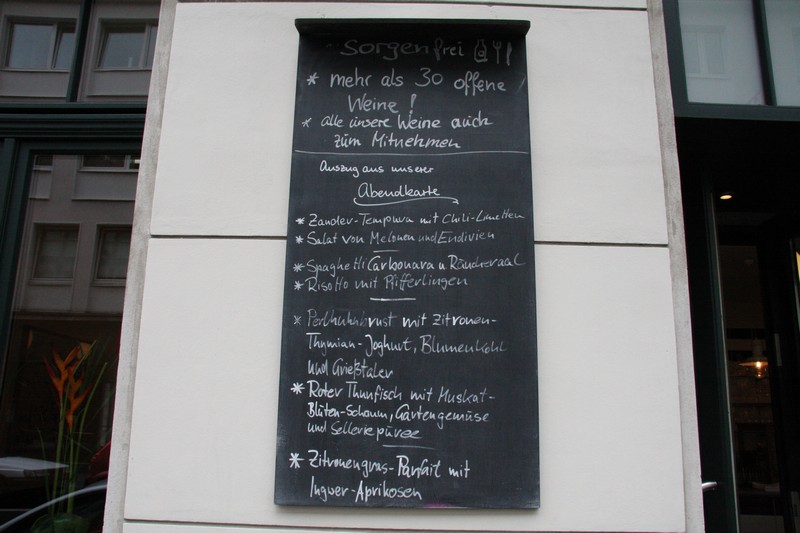 Sorgenfrei
* mehr als 30 offene
Weine!
* alle unsere Weine auch
zum Mitnehmen
Auszug aus unserer
Abendkarte
* Zander-Tempura mit Chili-Limetten
* Salat von Melonen und Endivien
* Spaghetti Carbonara u Räucheraal
* Risotto mit Pfifferlingen
* Perlhuhnbrust mit Zitronen-
Thymian-Joghurt, Blumenkohl
und Grießtaler
* Roter Thunfisch mit Muskat-
Blüten-Schaum, Gartengemüse
und Selleriepüree
* Zitronengras-Parfait mit
Ingwer-Aprikosen